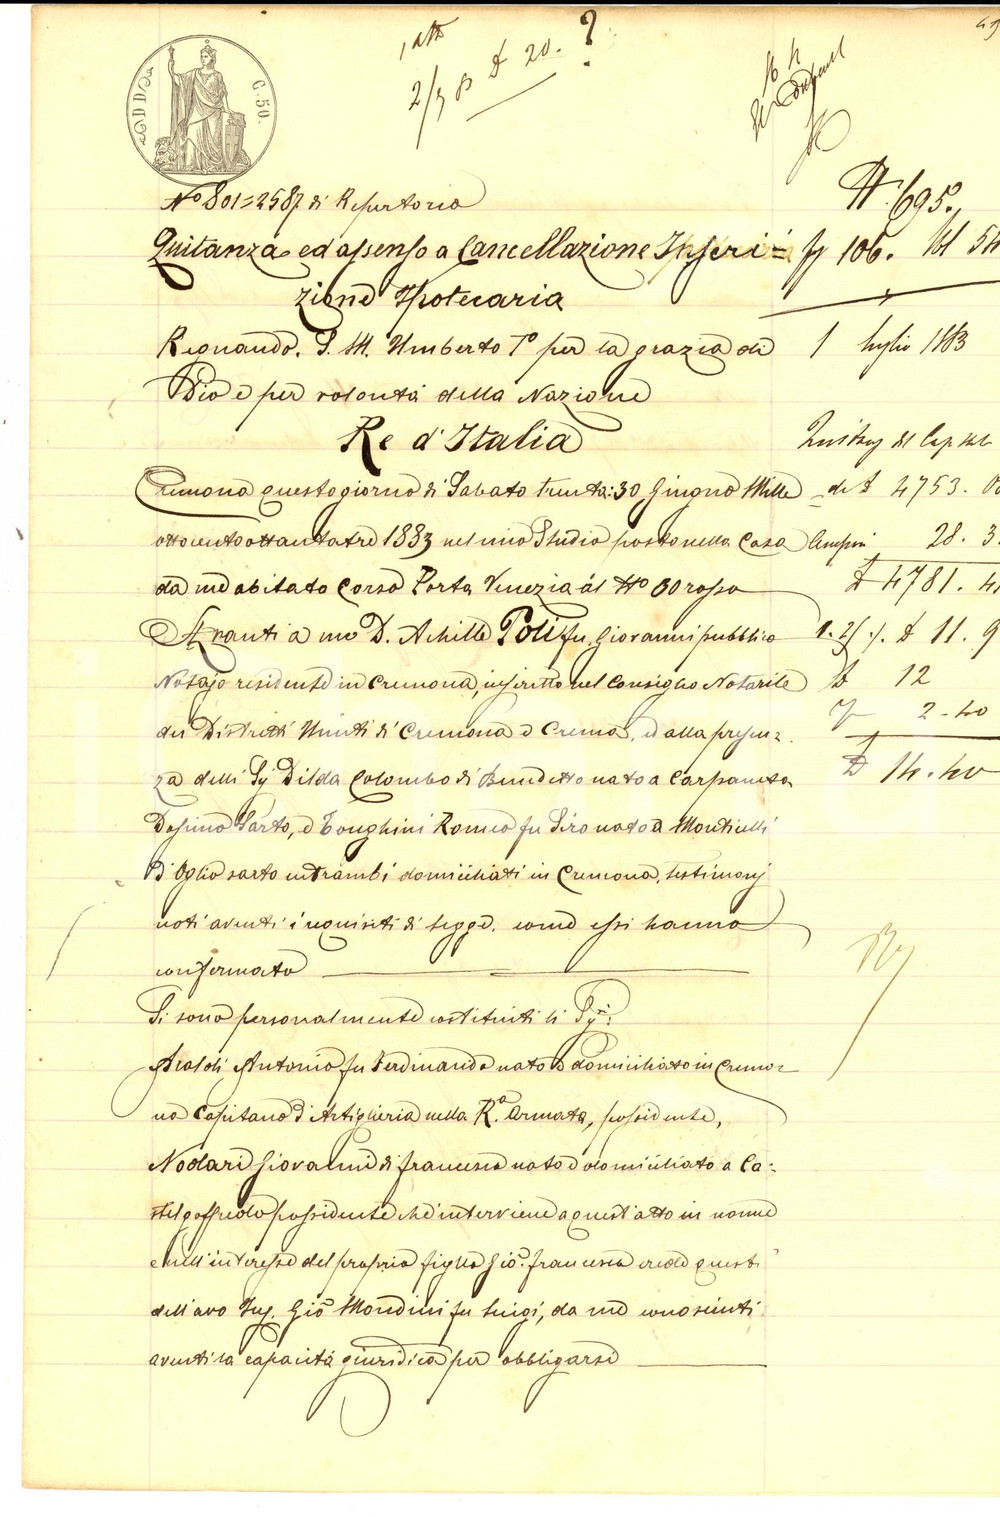 1 att
2/3 83 £ 20. ?
C. 50.
N.º 801=2587 di Repertorio
N. 695.
Quitanza ed assenso a Cancellazione Inscri=
fg 106. Vol 54
zione Ipotecaria
Regnando S. M. Umberto 1º per la grazia di
1 luglio 1883
Dio e per volontà della Nazione
Re d'Italia
Cremona questo giorno di Sabato trenta: 30 Giugno Mille
de £ 4753. 0
ottocentoottantatre 1883 nel mio Studio posto nella Casa
28. 3
da me abitata Corso Porta Venezia al Nº 60 rosso
£ 4781. 4
Avanti a me D. Achille Poli fu Giovanni pubblico
£ 11. 9
Notajo residente in Cremona, inscritto nel Consiglio Notarile
12
dei Distretti Uniti di Cremona e Crema, ed alla presen=
2.40
za delli Sig Dilda Colombo di Benedetto nato a Carpaneta
£ 14.40
Dosimo Sarto, e Tonghini Romeo fu Siro nato a Monticelli
d'Oglio sarto entrambi domiciliati in Cremona, testimonj
noti aventi i requisiti di legge, come essi hanno
confermato
Si sono personalmente costituiti li Sigri:
Araldi Antonio fu Ferdinando nato e domiciliato in Cremo=
na Capitano d'Artiglieria nella R.a Armata, possidente,
Nodari Giovanni di Francesco nato e domiciliato a Ca=
stelgoffredo possidente che interviene a quest'atto in nome
e nell'interesse del proprio figlio Gio. Francesco erede questi
dell'avo Ing. Gio Mondini fu Luigi, da me conosciuti
aventi la capacità giuridica per obbligarsi